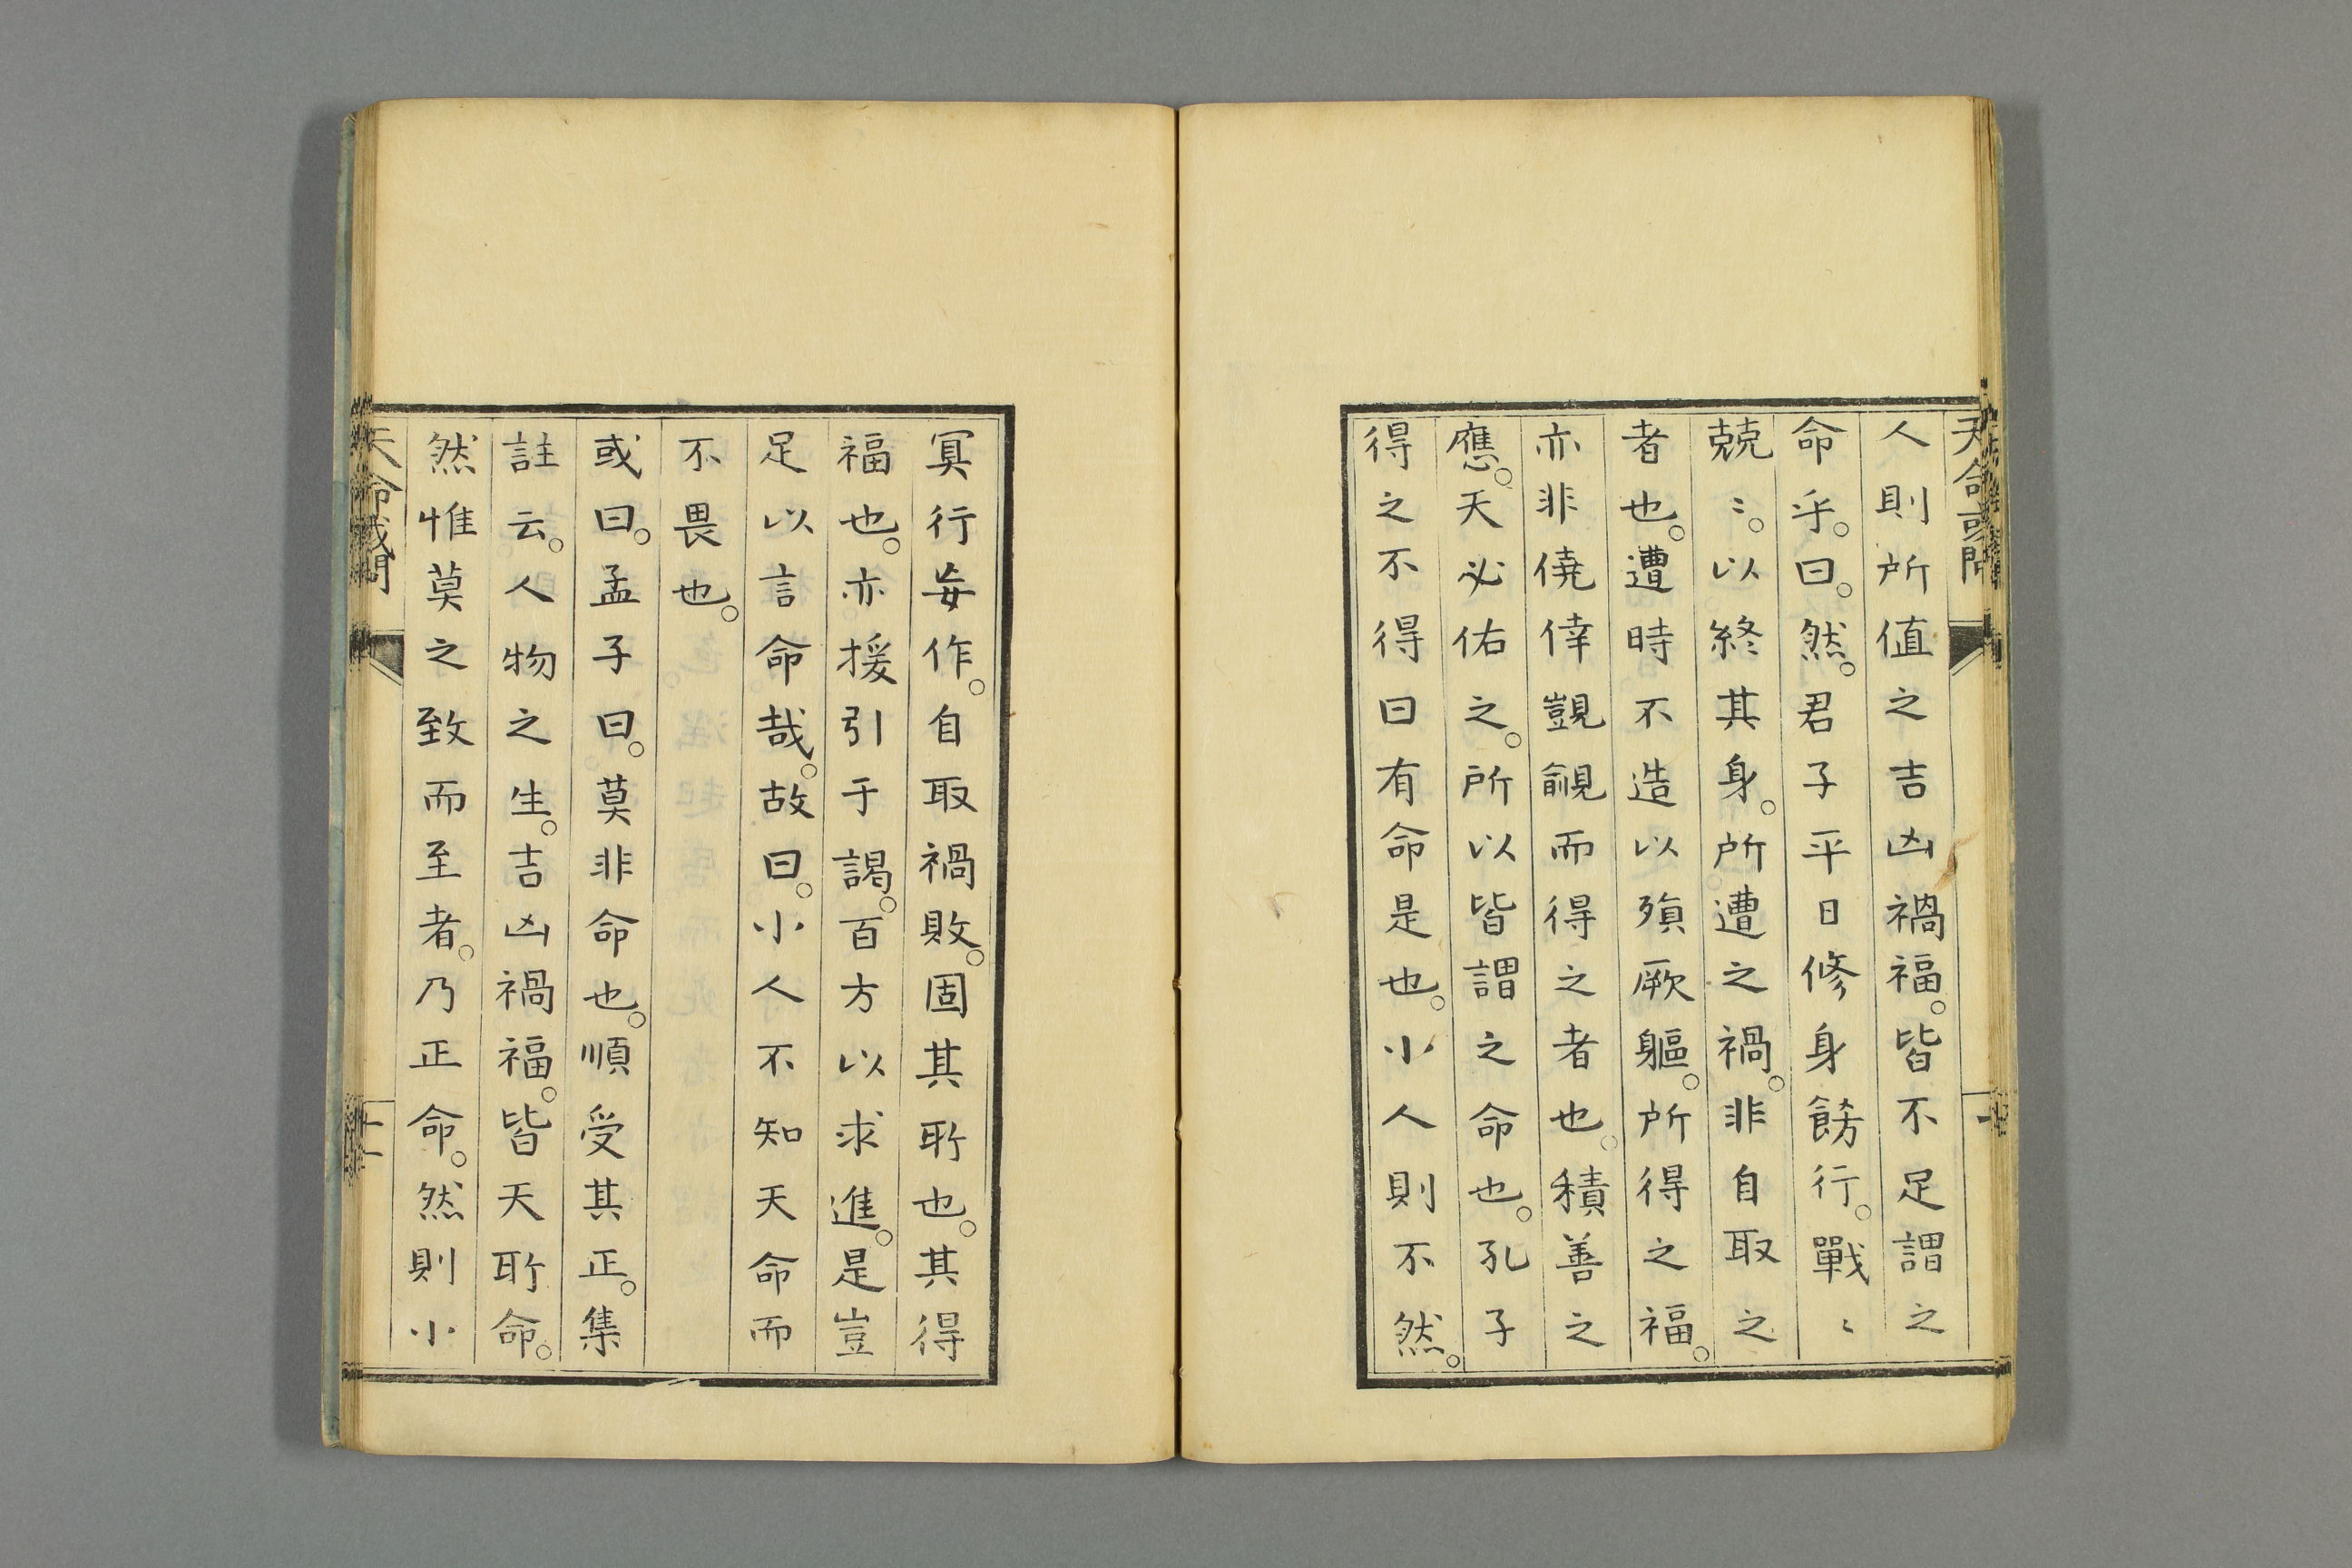 天命或問
人則所值之吉凶禍福。皆不足謂之
命乎。曰。然。君子平日修身飭行。戰〻
兢〻。以終其身。所遭之禍。非自取之
者也。遭時不造以殞厥軀。所得之福。
亦非僥倖覬覦而得之者也。積善之
應。天必佑之。所以皆謂之命也。孔子
得之不得曰有命是也。小人則不然。
冥行妄作。自取禍敗。固其所也。其得
福也。亦援引于謁。百方以求進。是豈
足以言命哉。故曰。小人不知天命而
不畏也。
或曰。孟子曰。莫非命也。順受其正。集
註云。人物之生。吉凶禍福。皆天所命。
然惟莫之致而至者。乃正命。然則小
天命或問